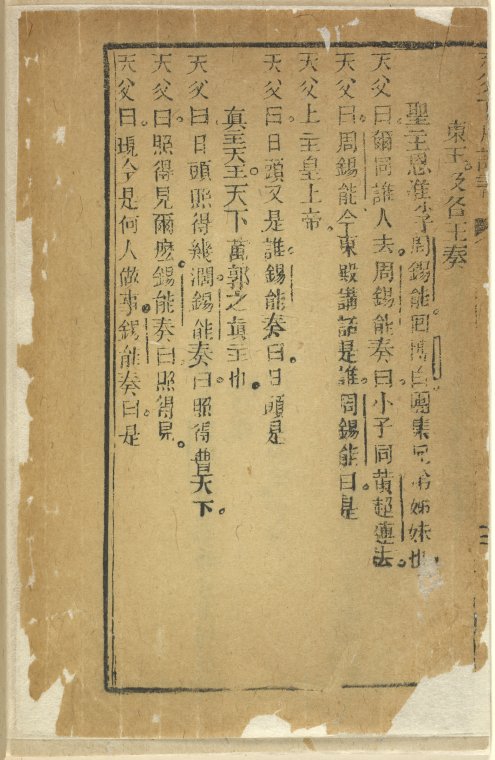 天父下凡詔書
東王及各王奏
聖主恩准小子周錫能回博白團集兄弟姊妹也
天父曰爾同誰人去周錫能奏曰小子同黃超連去
天父曰周錫能今東殿講話是誰周錫能曰是
天父上主皇上帝
天父曰日頭又是誰錫能奏曰日頭是
真主天王天下萬郭之真主也
天父曰日頭照得幾濶錫能奏曰照得普天下
天父曰照得見爾麽錫能奏曰照得見
天父曰現今是何人做事錫能奏曰是